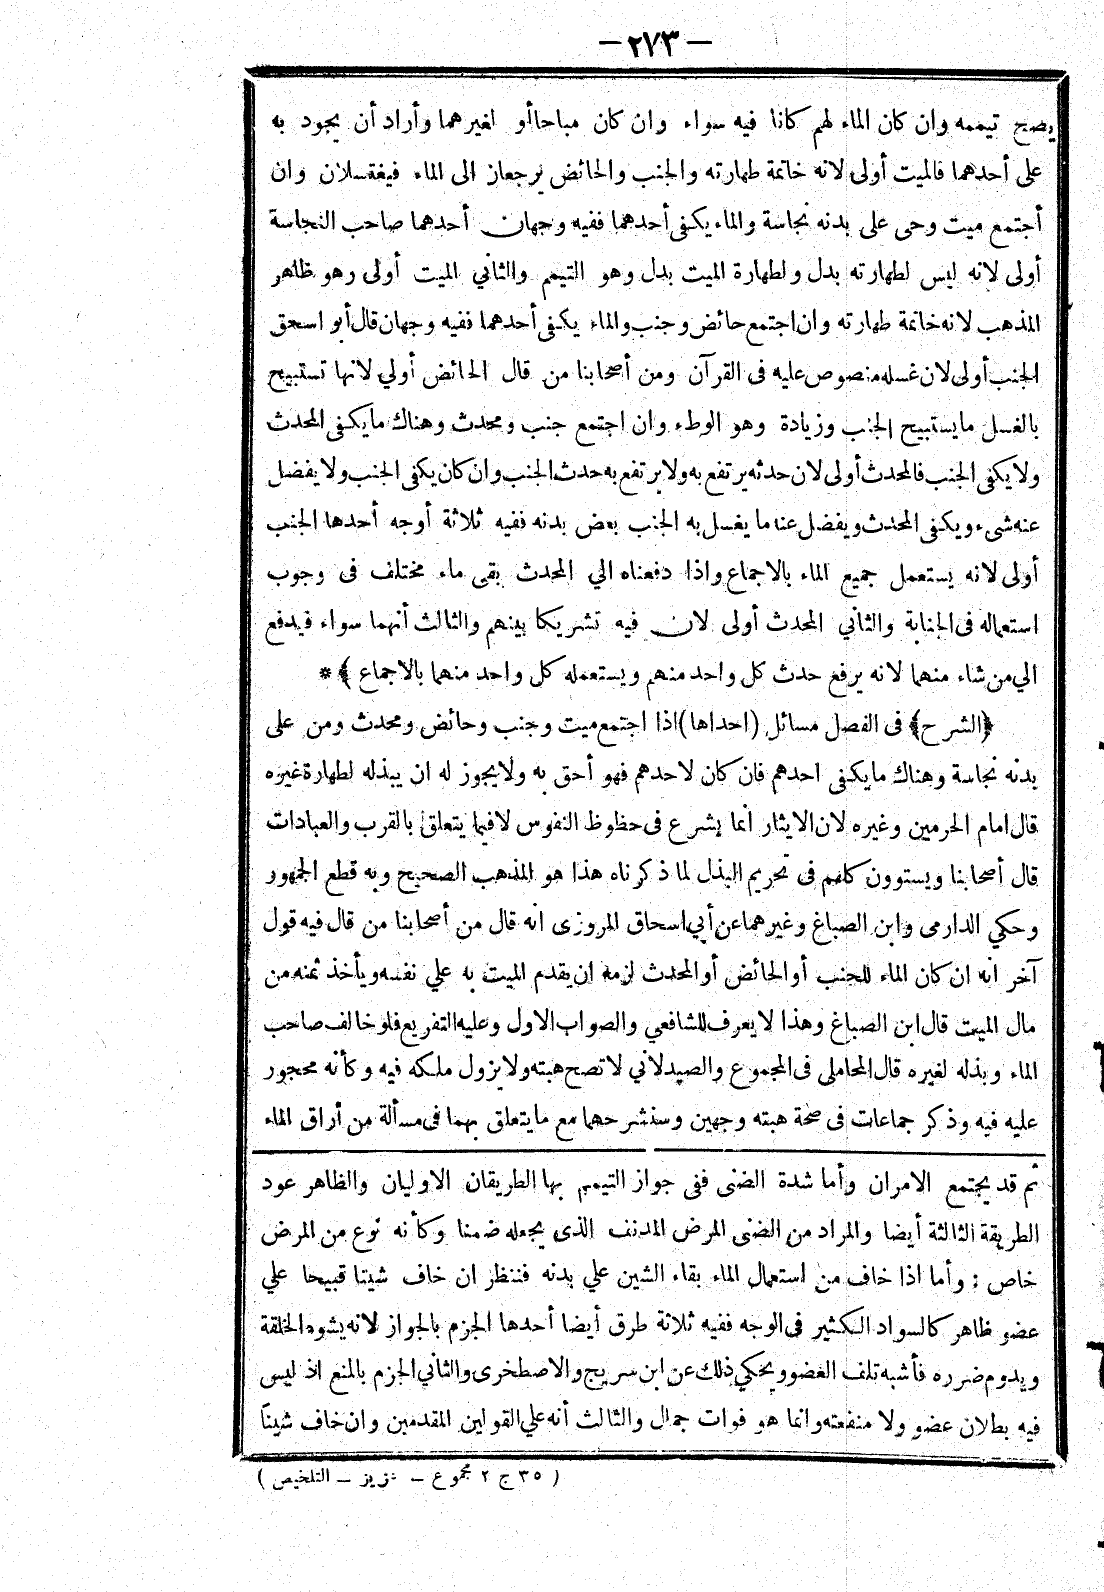 — ٢٧٣ —
يصح تيممه وان كان الماء لهم كانا فيه سواء وان كان مباحا أو لغيرهما وأراد أن يجود به
على أحدهما فالميت أولى لانه خاتمة طهارته والجنب والحائض يرجعان الى الماء فيغتسلان وان
أجتمع ميت وحى على بدنه نجاسة والماء يكفى أحدهما ففيه وجهان أحدهما صاحب النجاسة
أولى لانه ليس لطهارته بدل ولطهارة الميت بدل وهو التيمم والثاني الميت أولى وهو ظاهر
المذهب لانه خاتمة طهارته وان اجتمع حائض وجنب والماء يكفى أحدهما ففيه وجهان قال أبو اسحق
الجنب أولى لان غسله منصوص عليه فى القرآن ومن أصحابنا من قال الحائض أولي لانها تستبيح
بالغسل ما يستبيح الجنب وزيادة وهو الوطء وان اجتمع جنب ومحدث وهناك ما يكفى المحدث
ولا يكفى الجنب فالمحدث أولى لان حدثه يرتفع به ولا يرتفع به حدث الجنب وان كان يكفى الجنب ولا يفضل
عنه شىء ويكفى المحدث ويفضل عنه ما يغسل به الجنب بعض بدنه ففيه ثلاثة أوجه أحدها الجنب
أولى لانه يستعمل جميع الماء بالاجماع واذا دفعناه الي المحدث بقى ماء مختلف فى وجوب
استعماله فى الجنابة والثاني المحدث أولى لان فيه تشريكا بينهم والثالث أنهما سواء فيدفع
الي من شاء منهما لانه يرفع حدث كل واحد منهم ويستعمله كل واحد منهما بالاجماع ﴾ *
﴿الشرح﴾ فى الفصل مسائل (احداها) اذا اجتمع ميت وجنب وحائض ومحدث ومن على
بدنه نجاسة وهناك ما يكفى احدهم فان كان لاحدهم فهو أحق به ولا يجوز له ان يبذله لطهارة غيره
قال امام الحرمين وغيره لان الايثار انما يشرع فى حظوظ النفوس لا فيما يتعلق بالقرب والعبادات
قال أصحابنا ويستوون كلهم فى تحريم البذل لما ذكرناه هذا هو المذهب الصحيح وبه قطع الجمهور
وحكي الدارمى وابن الصباغ وغيرهما عن أبي اسحاق المروزى انه قال من أصحابنا من قال فيه قول
آخر انه ان كان الماء للجنب أو الحائض أو المحدث لزمه ان يقدم الميت به علي نفسه ويأخذ ثمنه من
مال الميت قال ابن الصباغ وهذا لا يعرف للشافعي والصواب الاول وعليه التفريع فلو خالف صاحب
الماء وبذله لغيره قال المحاملى فى المجموع والصيدلاني لا تصح هبته ولا يزول ملكه فيه وكأنه محجور
عليه فيه وذكر جماعات فى صحة هبته وجهين وسنشرحهما مع ما يتعلق بهما فى مسألة من أراق الماء
ثم قد يجتمع الامران وأما شدة الضنى ففى جواز التيمم بها الطريقان الاوليان والظاهر عود
الطريقة الثالثة أيضا والمراد من الضنى المرض المدنف الذى يجعله ضمنا وكأنه نوع من المرض
خاص : وأما اذا خاف من استعمال الماء بقاء الشين علي بدنه فننظر ان خاف شيئا قبيحا علي
عضو ظاهر كالسواد الكثير فى الوجه ففيه ثلاثة طرق أيضا أحدها الجزم بالجواز لانه يشوه الخلقة
ويدوم ضرره فأشبه تلف العضو ويحكي ذلك عن ابن سريج والاصطخرى والثاني الجزم بالمنع اذ ليس
فيه بطلان عضو ولا منفعته وانما هو فوات جمال والثالث أنه علي القولين المقدمين وان خاف شيئاً
( ٣٥ ج ٢ مجموع – عزيز – التلخيص )